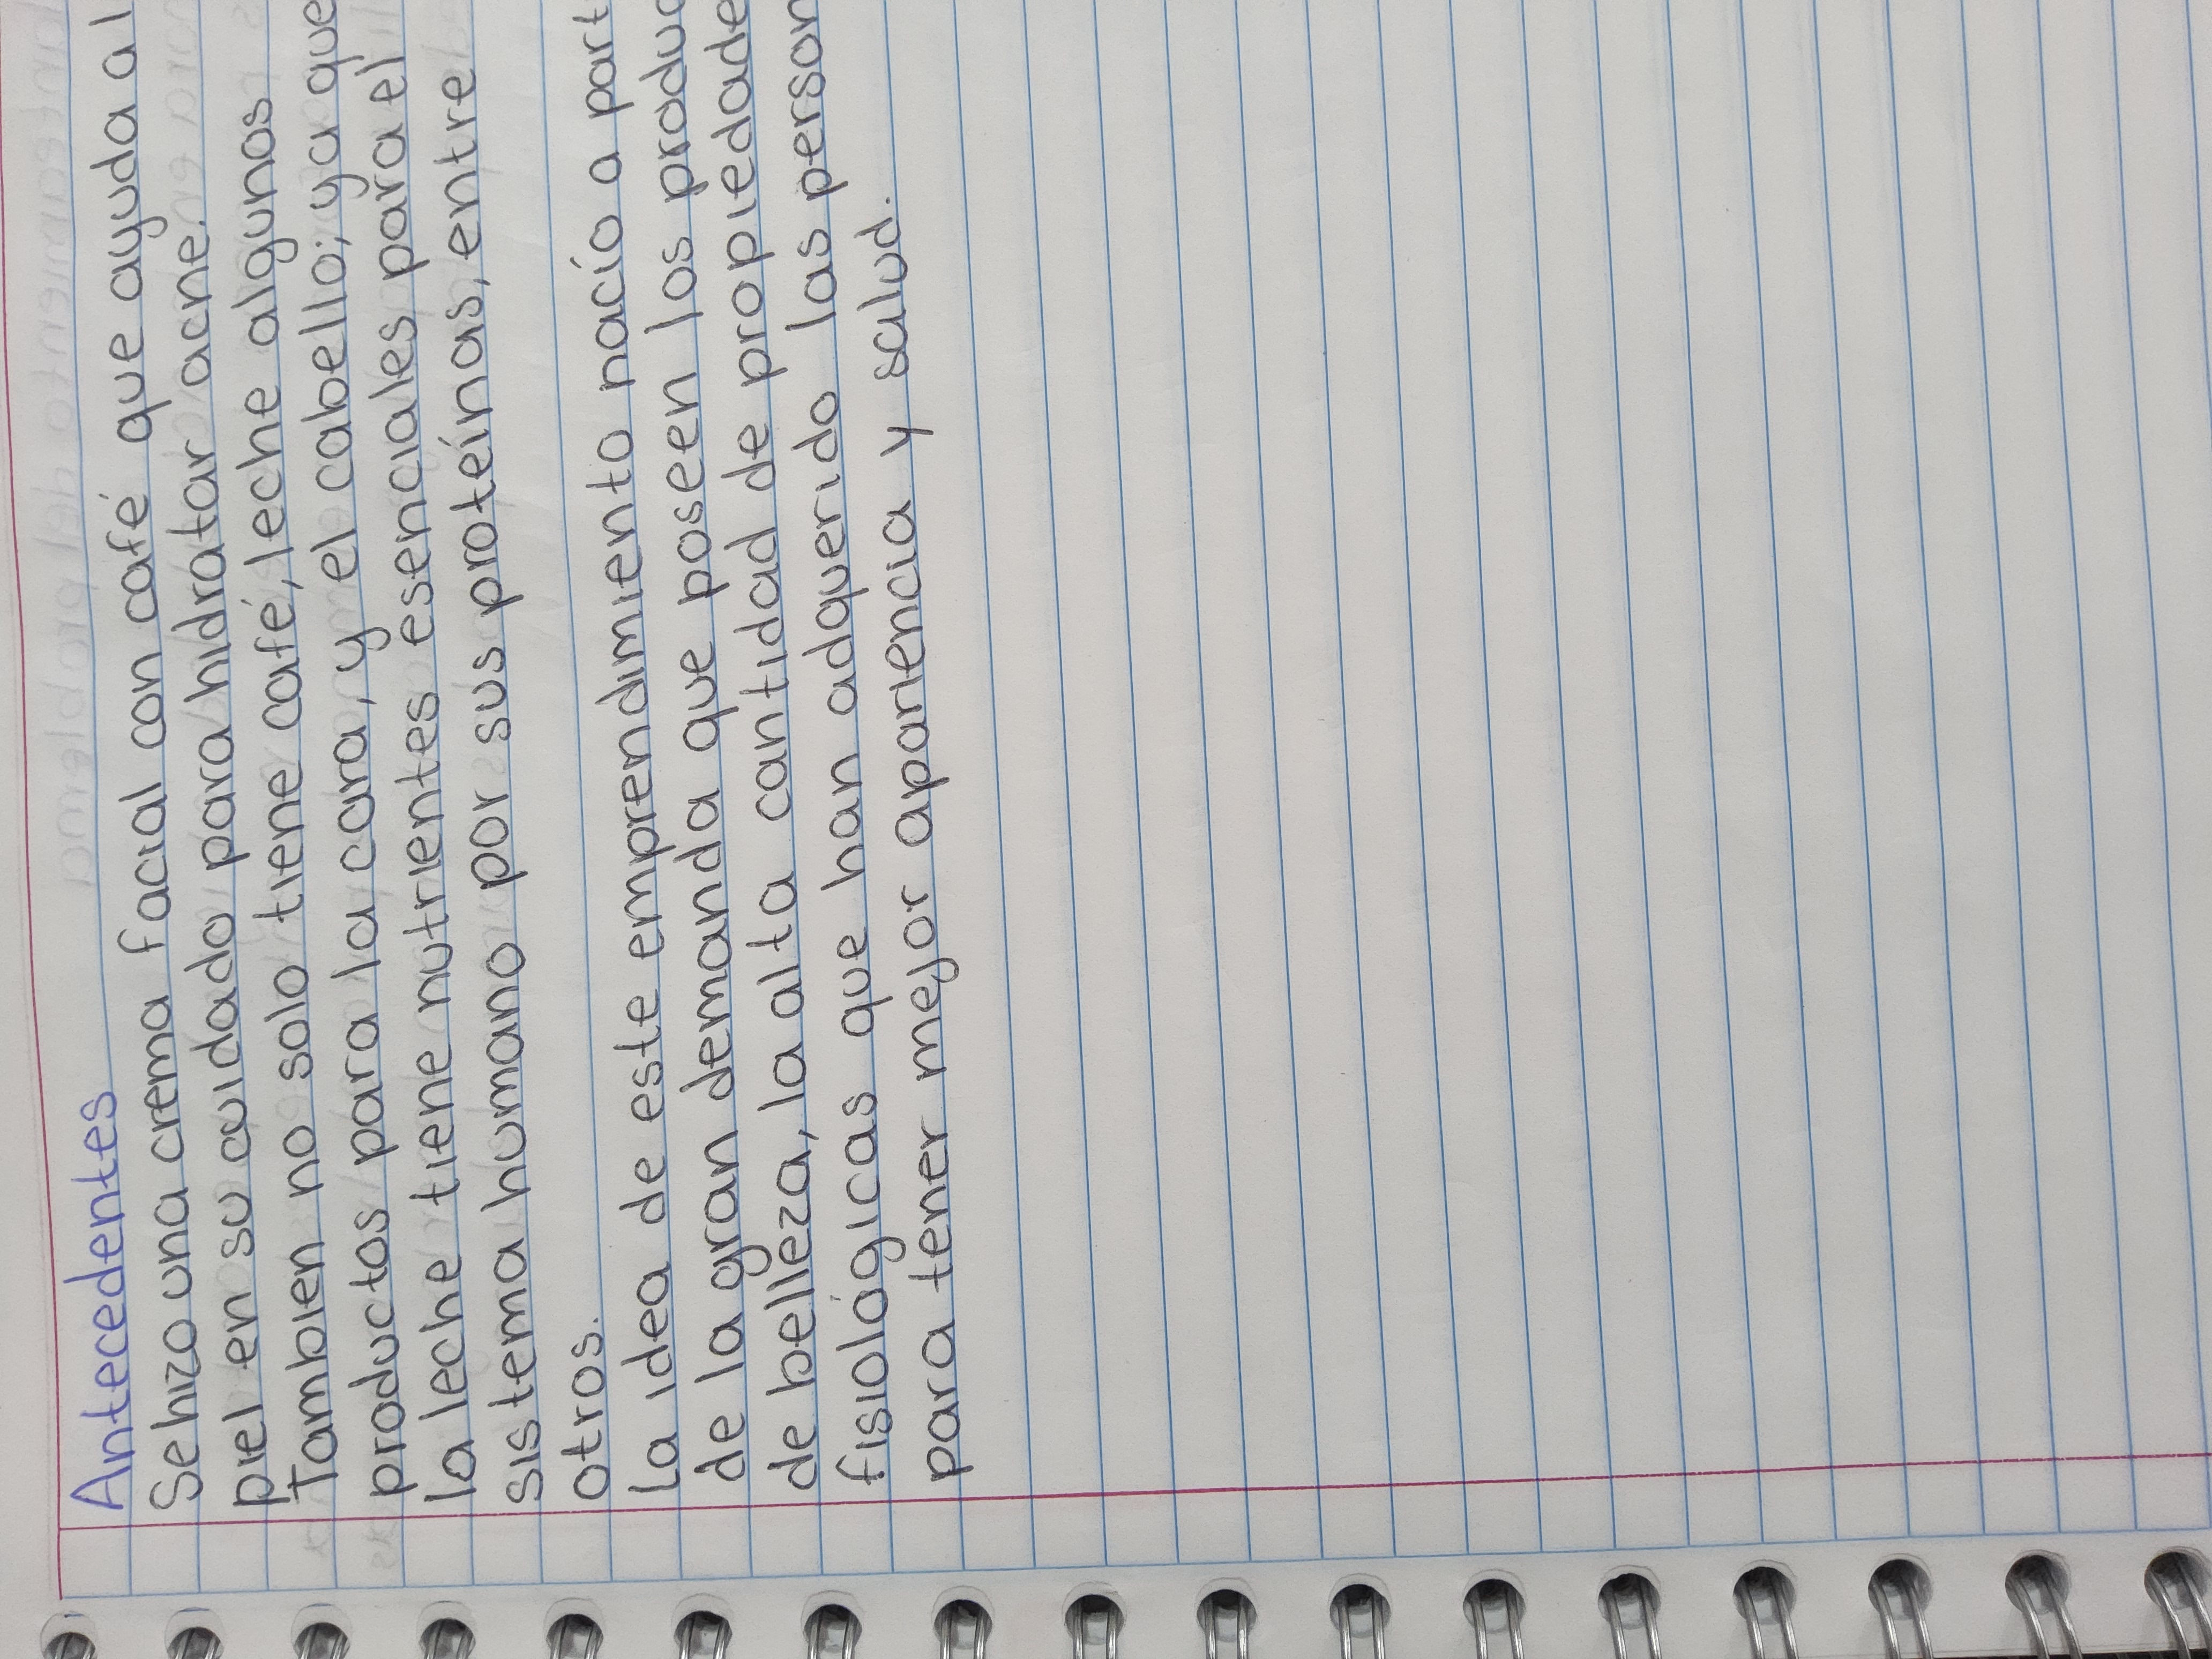 Antecedentes
Se hizo una crema facial con café que ayuda a l
piel en su cuidado para hidratar acne.
Tambien no solo tiene café, leche algunos
productos para la cara, y el cabello; ya que
la leche tiene nutrientes esenciales para el
sistema humano por sus proteínas, entre
otros.
La idea de este emprendimiento nació a part
de la gran demanda que poseen los produc
de belleza, la alta cantidad de propiedade
fisiológicas que han adquerido las person
para tener mejor apariencia y salud.